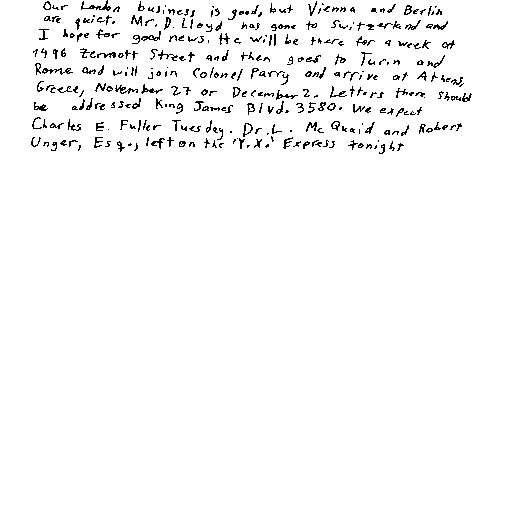 Our London business is good, but Vienna and Berlin
are quiet. Mr. D. Lloyd has gone to Switzerland and
I hope for good news. He will be there for a week at
1496 Zermott Street and then goes to Turin and
Rome and will join Colonel Parry and arrive at Athens,
Greece, November 27 or December 2. Letters there should
be addressed King James Blvd. 3580. We expect
Charles E. Fuller Tuesday. Dr. L. McQuaid and Robert
Unger, Esq., left on the 'Y.X.' Express tonight